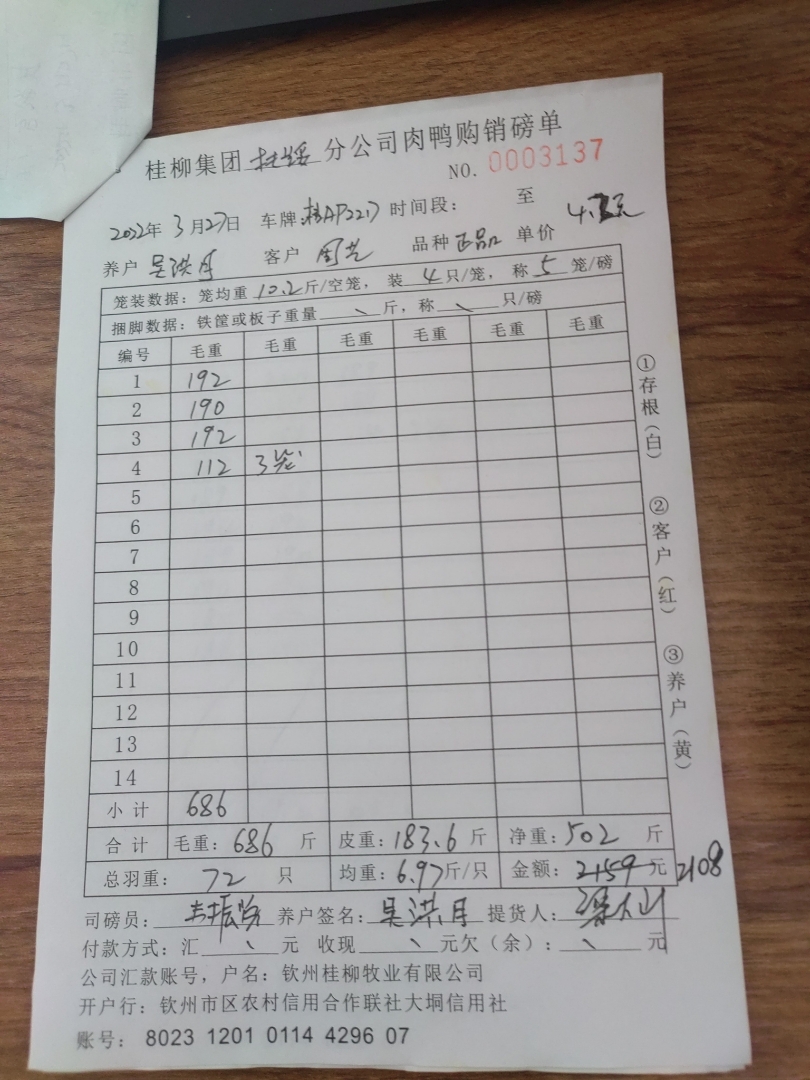 桂柳集团扶绥分公司肉鸭购销磅单
NO. 0003137
2022年 3月27日 车牌: 时间段: 至
养户 吴洪月 客户 品种 正品 单价
笼装数据: 笼均重 10.2 斤/空笼, 装 4 只/笼, 称 5 笼/磅
捆脚数据: 铁筐或板子重量 、 斤, 称 、 只/磅
编号 毛重 毛重 毛重 毛重 毛重 毛重
1 192
2 190
3 192
4 112 3笼
5
6
7
8
9
10
11
12
13
14
小计 686
合计 毛重: 686 斤 皮重: 183.6 斤 净重: 502 斤
总羽重: 72 只 均重: 6.97斤/只 金额: 2159 元 2108
司磅员: 养户签名: 吴洪月 提货人:
付款方式: 汇 、 元 收现 、 元欠(余): 、 元
公司汇款账号, 户名: 钦州桂柳牧业有限公司
开户行: 钦州市区农村信用合作联社大垌信用社
账号: 8023 1201 0114 4296 07
①存根(白) ②客户(红) ③养户(黄)